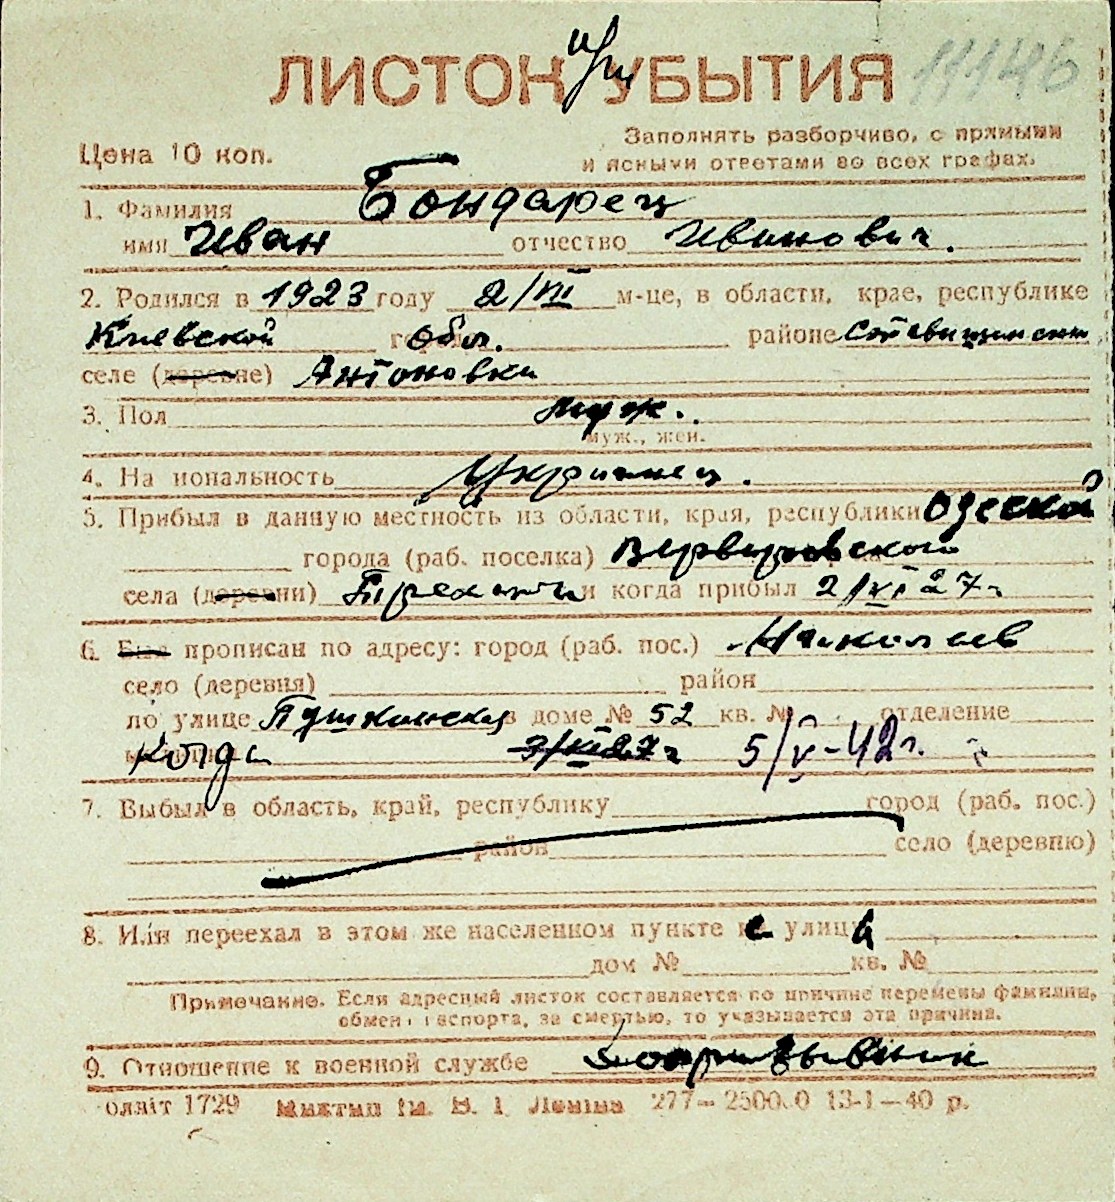 ЛИСТОК при УБЫТИЯ 11146
Цена 10 коп.
Заполнять разборчиво, с прямыми
и ясными ответами во всех графах.
1. Фамилия Бондарец
имя Иван отчество Иванович.
2. Родился в 1923 году 2/VII м-це, в области, крае, республике
Киевской обл. районе
селе (деревне) Антоновки
3. Пол муж.
муж., жен.
4. На иональность Украинец.
5. Прибыл в данную местность из области, края, республики Одеской
города (раб. поселка)
села (деревни) и когда прибыл 2/VI 27 г.
6. Был прописан по адресу: город (раб. пос.) Николаев
село (деревня) район
по улице Пушкинская в доме № 52 кв. № отделение
Когда 3/VI 27 г 5/V-42 г.
7. Выбыл в область, край, республику город (раб. пос.)
район село (деревню)
8. Или переехал в этом же населенном пункте с улицы
дом № кв. №
Примечание. Если адресный листок составляется по причине перемены фамилии,
обмен паспорта, за смертью, то указывается эта причина.
9. Отношение к военной службе
олліт 1729 Ім. В. І. Леніна 277— 13-1—40 р.